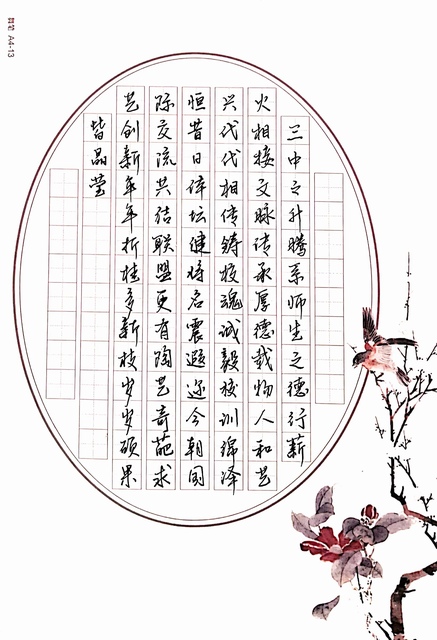 三中之升腾系师生之德行薪
火相接文脉传承厚德载物人和艺
兴代代相传铸校魂诚毅校训绵泽
恒昔日体坛健将名震遐迩今朝国
际交流共结联盟更有陶艺奇葩求
艺创新年年折桂多新枝岁岁硕果
皆晶莹
A4-13